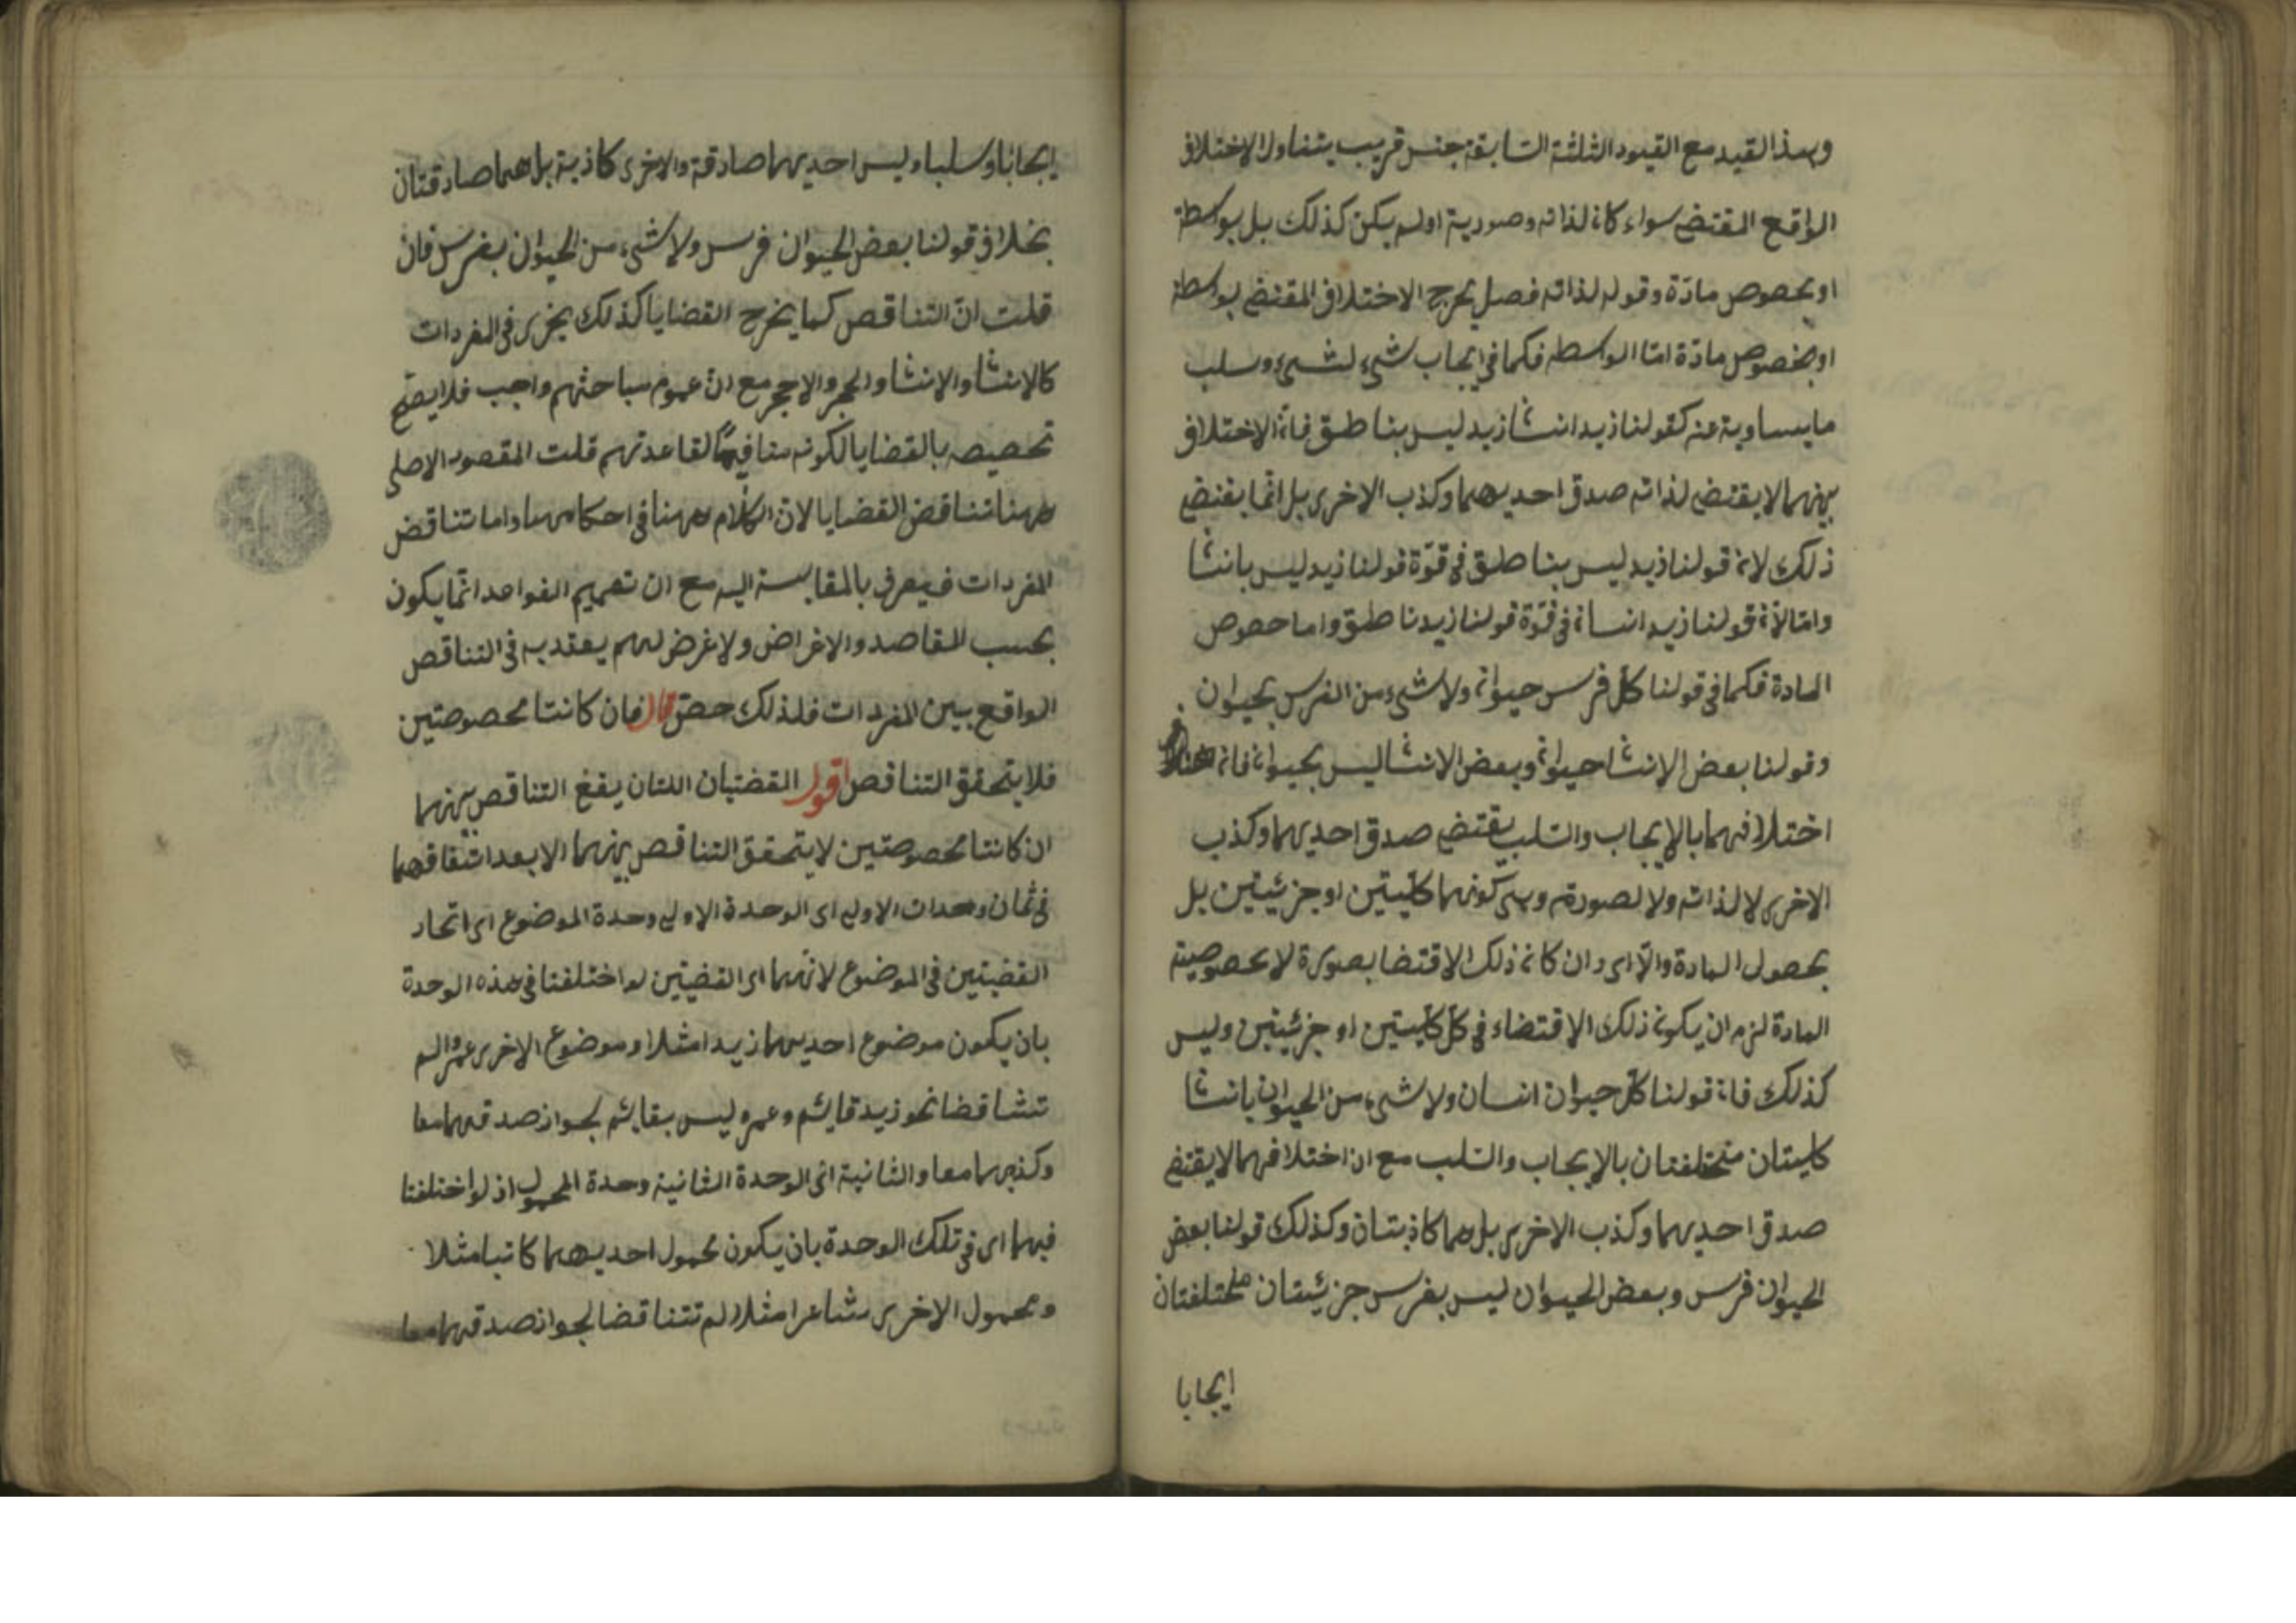 وبهذا القيد مع القيود الثلثة السابقة جنس قريب يتناول الاختلاف
الواقع المقتضى سواء كان لذاته وصورية او لم يكن كذلك بل بواسطة
او بخصوص مادة وقوله لذاته فصل يخرج الاختلاف المقتضى بواسطة
او بخصوص مادة اما الواسطة فكما في ايجاب شيء لشيء وسلب
ما يساويه عنه كقولنا زيد انسا زيد ليس بناطق فان الاختلاف
بينهما لا يقتضى لذاته صدق احديهما وكذب الاخرى بل انما يقتضى
ذلك لان قولنا زيد ليس بناطق في قوة قولنا زيد ليس بانسا
واما لان قولنا زيد انسان في قوة قولنا زيد ناطق واما خصوص
المادة فكما في قولنا كل فرس حيوان ولا شيء من الفرس بحيوان
وقولنا بعض الانسا حيوان وبعض الانسا ليس بحيوان فان
اختلافهما بالايجاب والسلب يقتضى صدق احديهما وكذب
الاخرى لا لذاته ولا لصورة وهي كونهما كليتين او جزئيتين بل
بحصول المادة والا اى وان كان ذلك الاقتضا بصورة لا بخصوصية
المادة لزم ان يكون ذلك الاقتضاء في كل كليتين او جزئيتين وليس
كذلك فان قولنا كل حيوان انسان ولا شيء من الحيوان بانسا
كليتان مختلفتان بالايجاب والسلب مع ان اختلافهما لا يقتضى
صدق احديهما وكذب الاخرى بل هما كاذبتان وكذلك قولنا بعض
الحيوان فرس وبعض الحيوان ليس بفرس جزئيتان مختلفتان
ايجابا
ايجابا وسلبا وليس احديهما صادقة والاخرى كاذبة بل هما صادقتان
بخلاف قولنا بعض الحيوان فرس ولا شيء من الحيوان بفرس فان
قلت ان التناقص كما يخرج القضايا كذلك يجزى في المفردات
كالانسا والانسا والحجر والاحجر مع ان عموم مباحثهم واجب فلا يصح
تحصيصه بالقضايا لكونه منافيا لقاعدتهم قلت المقصود الاصلى
ههنا تناقض القضايا لان الكلام ههنا في احكامها واما تناقض
المفردات فيعرف بالمقايسة اليه مع ان تعميم القواعد انما يكون
بحسب المقاصد والاغراض ولا غرض لهم يعتد به في التناقص
الواقع بين المفردات فلذلك خص قال فان كانتا مخصوصتين
فلا يتحقق التناقص اقول القضيتان اللتان يقع التناقص بينهما
ان كانتا مخصوصتين لا يتحقق التناقص بينهما الا بعد اتفاقهما
في ثمان وحدات الاولى اى الوحدة الاولى وحدة الموضوع اى اتحاد
القضيتين في الموضوع لانهما اى القضيتين لو اختلفتا في هذه الوحدة
بان يكون موضوع احديهما زيدا مثلا وموضوع الاخرى عمرا لم
تتناقضا نحو زيد قائم وعمرو ليس بقائم لجواز صدقهما معا
وكذبهما معا والثانية اى الوحدة الثانية وحدة المحمول اذ لو اختلفتا
فيهما اى في تلك الوحدة بان يكون محمول احديهما كاتبا مثلا
ومحمول الاخرى شاعرا مثلا لم تتناقضا لجواز صدقهما معا